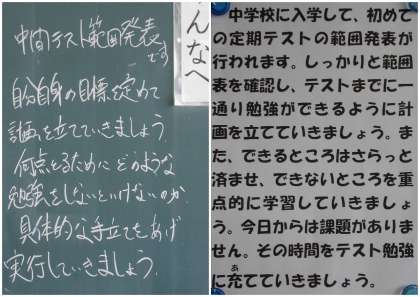 中間テスト範囲発表
です
自分自身の目標を定めて
計画を立てていきましょう。
何点とるためにどのような
勉強をしないといけないのか、
具体的な手立てをあげ
実行していきましょう。
んなへ
中学校に入学して、初めて
の定期テストの範囲発表が
行われます。しっかりと範囲
表を確認し、テストまでに一
通り勉強ができるように計
画を立てていきましょう。ま
た、できるところはさらっと
済ませ、できないところを重
点的に学習していきましょ
う。今日からは課題がありま
せん。その時間をテスト勉強
に充てていきましょう。
あ